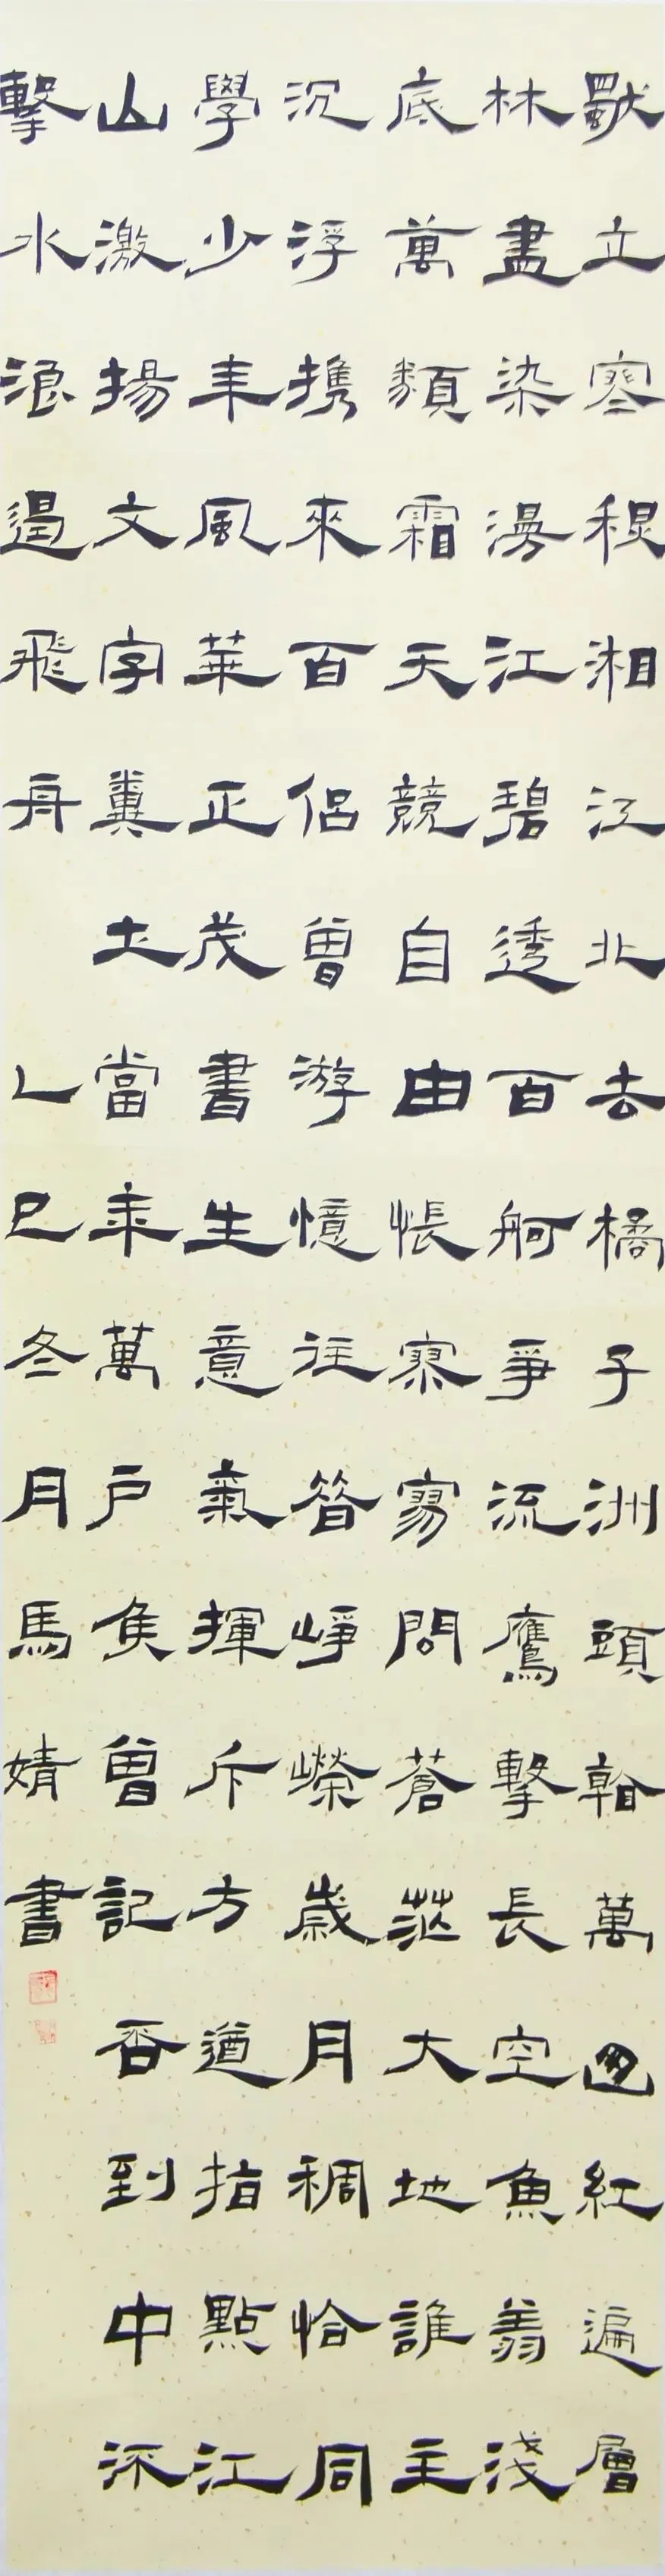 獨立寒秋湘江北去橘子洲頭看萬山紅遍層
林盡染漫江碧透百舸爭流鷹擊長空魚翔淺
底萬類霜天競自由悵寥廓問蒼茫大地誰主
沉浮携來百侶曾游憶往昔崢嶸歲月稠恰同
學少年風華正茂書生意氣揮斥方遒指點江
山激揚文字糞土當年萬户侯曾記否到中流
擊水浪遏飛舟 乙巳冬月馬婧書